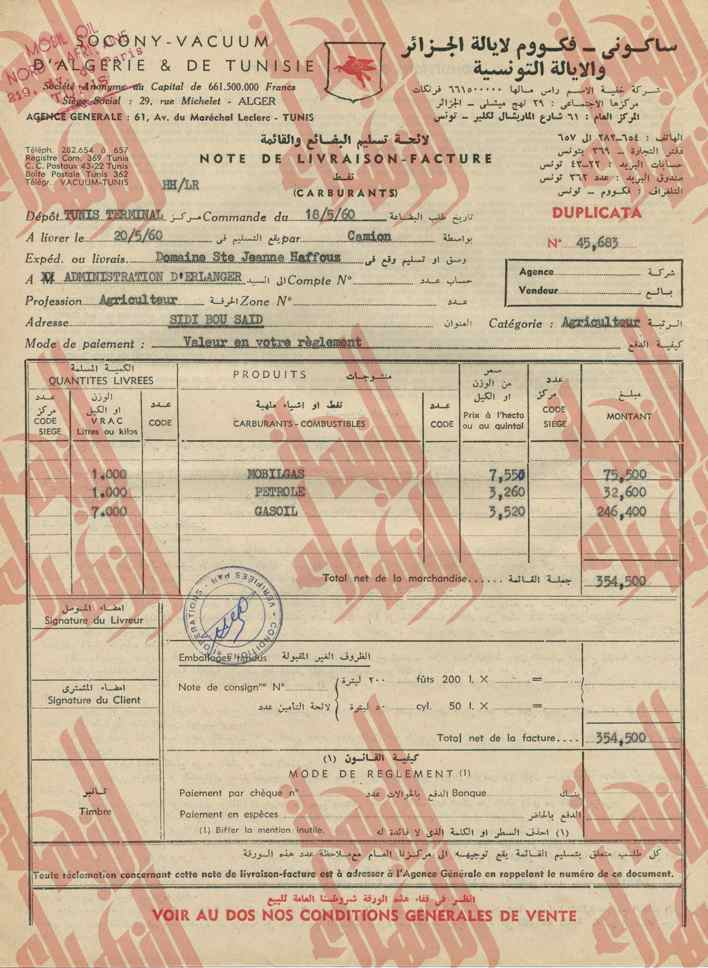 MOBIL OIL
NORD AFRICAINE
TUNIS
SOCONY-VACUUM
D'ALGERIE & DE TUNISIE
Société Anonyme au Capital de 661.500.000 Francs
Siège Social : 29, rue Michelet - ALGER
AGENCE GENERALE : 61, Av. du Maréchal Leclerc - TUNIS
ساكونى - فكووم لايالة الجزائر
والايالة التونسية
شركة خفية الاسم راس مالها ٦٦١٥٠٠٠٠٠ فرنكات
مركزها الاجتماعى : ٢٩ نهج ميشلى - الجزائر
المركز العام : ٦١ شارع الماريشال لكلير - تونس
Téléph. 282.654 à 657
Registre Com. 369 Tunis
C. C. Postaux 43-22 Tunis
Boîte Postale Tunis 362
Télégr. VACUUM-TUNIS
HH/LR
لائحة تسليم البضائع والقائمة
NOTE DE LIVRAISON-FACTURE
نفط
(CARBURANTS)
الهاتف : ٢٨٢٠٦٥٤ الى ٦٥٧
دفتر التجارة - ٣٦٩ بتونس
حسابات البريد : ٢٢-٤٣ تونس
صندوق البريد : عدد ٣٦٢ تونس
التلغراف : فكووم - تونس
DUPLICATA
N° 45,683
Dépôt TUNIS TERMINAL مركز Commande du 18/5/60 تاريخ طلب البضاعة
A livrer le 20/5/60 يقع التسليم فى par Camion بواسطة
Expéd. ou livrais. Domaine Ste Jeanne Haffous وسق او تسليم وقع فى
A M ADMINISTRATION D'ERLANGER الى السيد Compte N° حساب عدد
Profession Agriculteur الحرفة Zone N° عدد
Adresse SIDI BOU SAID العنوان
Catégorie : Agriculteur الرتبة
Mode de paiement : Valeur en votre règlement كيفية الدفع
Agence شركة
Vendeur بالع
الكمية المسلمة
QUANTITES LIVREES
PRODUITS منتوجات
عدد مركز
CODE SIEGE
الوزن او الكيل
VRAC
Litres ou kilos
عدد
CODE
نفط او إشياء ملهبة
CARBURANTS-COMBUSTIBLES
عدد
CODE
سعر من الوزن او الكيل
Prix à l'hecto
ou au quintal
عدد مركز
CODE SIEGE
مبلغ
MONTANT
1.000 MOBILGAS 7,550 75,500
1.000 PETROLE 3,260 32,600
7.000 GASOIL 3,520 246,400
Total net de la marchandise...... جملة القائمة 354,500
امضاء الموصل
Signature du Livreur
CONDITIONS D'OPERATIONS VERIFIEES PAR
Emballages rendus الظروف الغير المقبولة
امضاء المشترى
Signature du Client
Note de consign^on N° ٢٠٠ ليترة fûts 200 l. X =
لائحة التأمين عدد ٥٠ ليترة cyl. 50 l. X =
Total net de la facture.... 354,500
كيفية القانون (١)
MODE DE REGLEMENT (1)
تانبر
Timbre
Paiement par chèque n° الدفع بالحوالات عدد Banque بنك
Paiement en espèces الدفع بالحاضر
(1) Biffer la mention inutile. (١) احذف السطر او الكلمة الذى لا فائدة له
كل طلب متعلق بتسليم القائمة يقع توجيهه الى مركزنا العام مع ملاحظة عدد هذه الورقة
Toute réclamation concernant cette note de livraison-facture est à adresser à l'Agence Générale en rappelant le numéro de ce document.
انظر فى قفاء هذه الورقة شروطنا العامة للبيع
VOIR AU DOS NOS CONDITIONS GENERALES DE VENTE